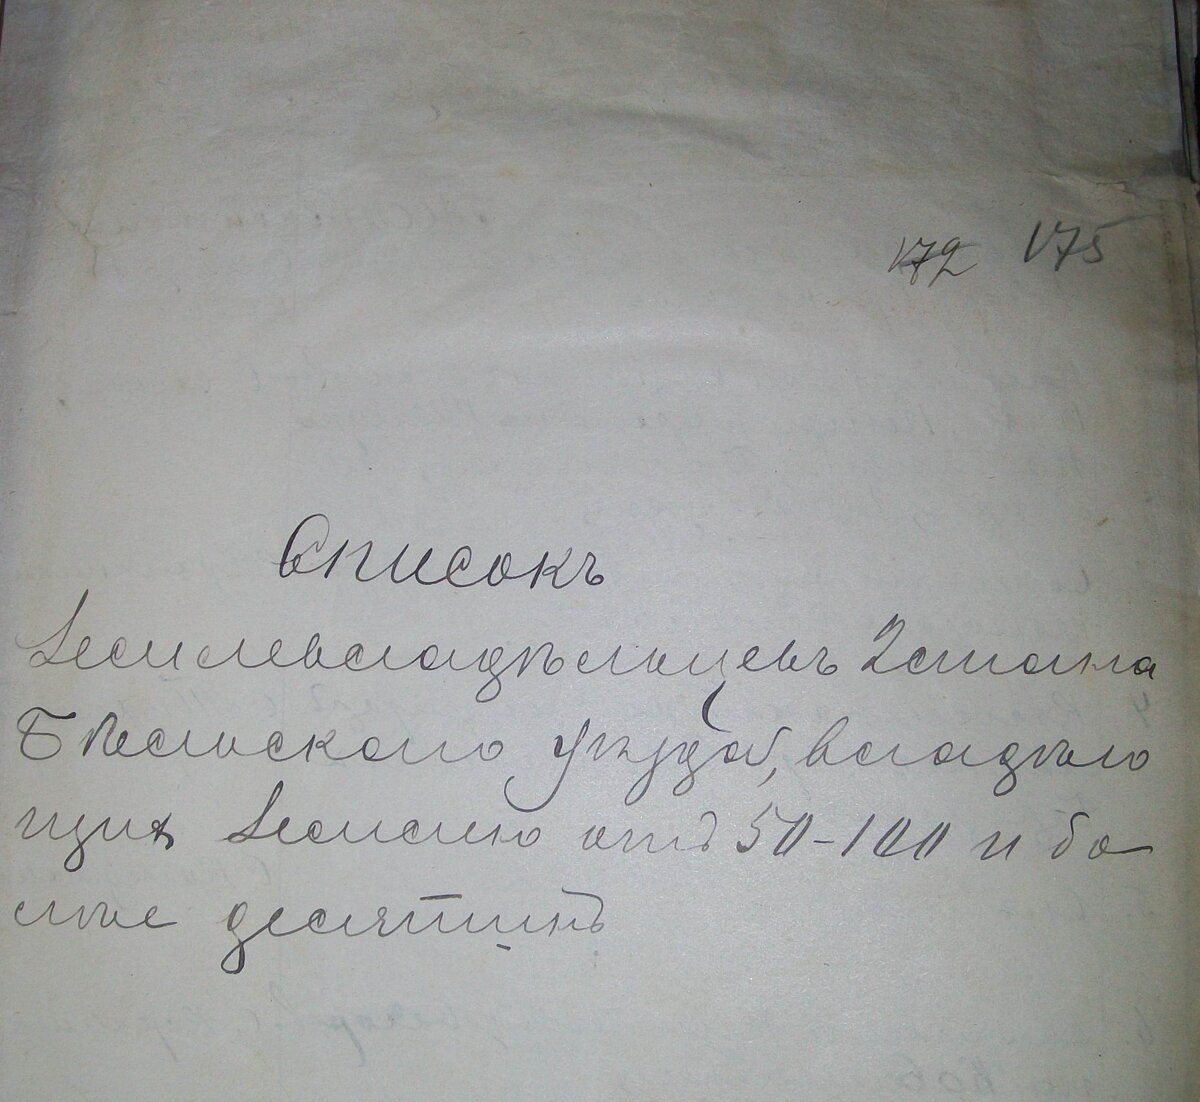 172 175
Списокъ
Землевладѣльцевъ 2 стана
Бѣльскаго уѣзда, владѣю
щихъ Землею отъ 50-100 и бо
лѣе десятинъ